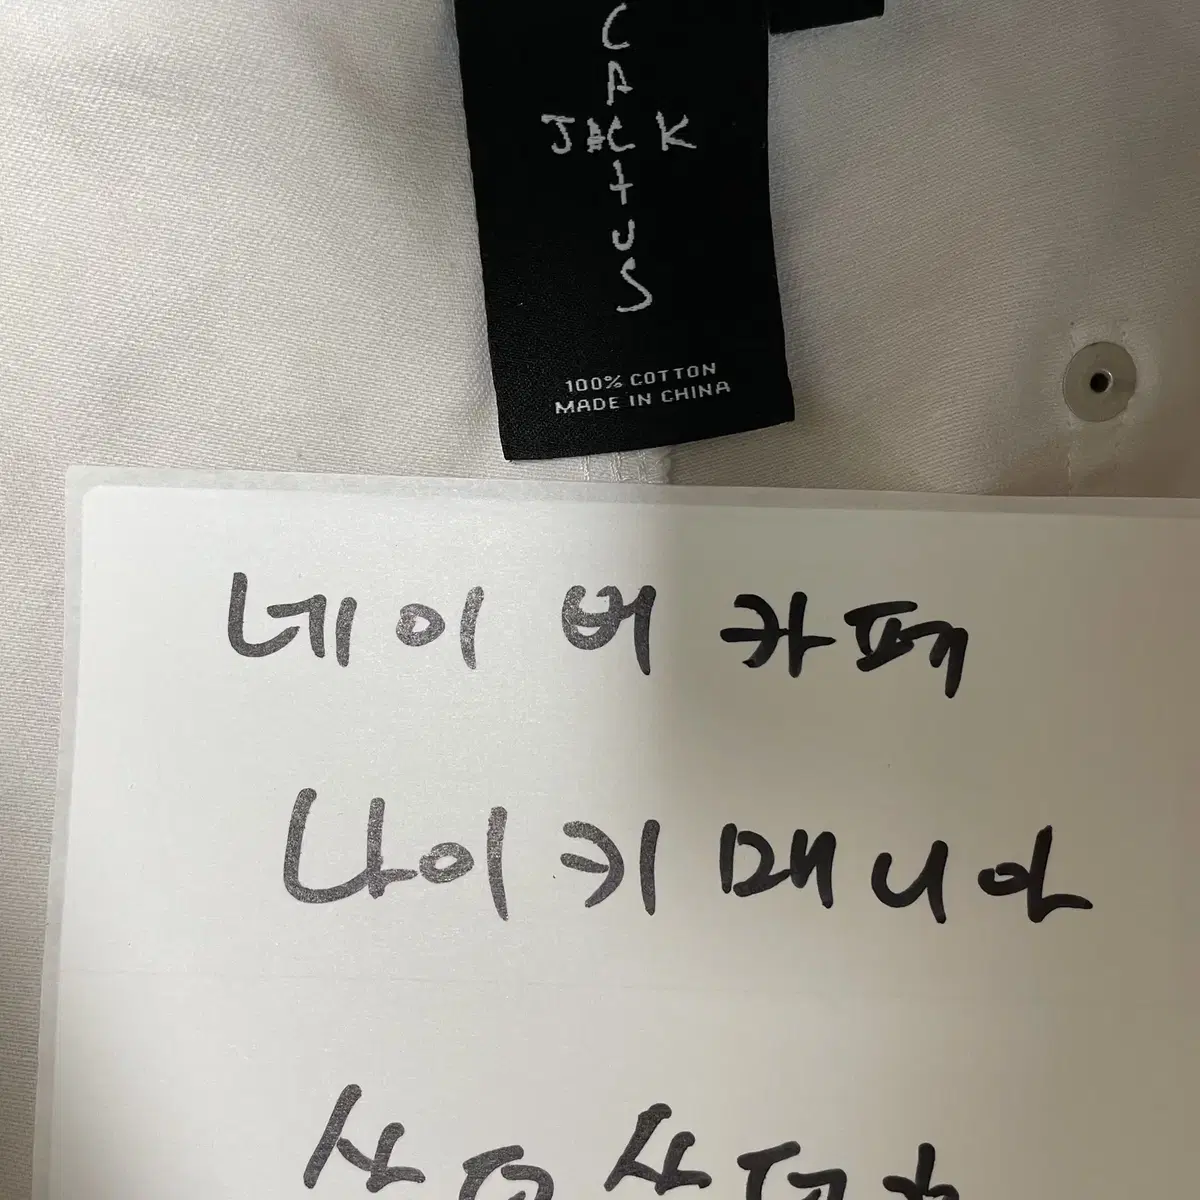 CACTUS
JACK
100% COTTON
MADE IN CHINA
네이버 카페
나이키매니아